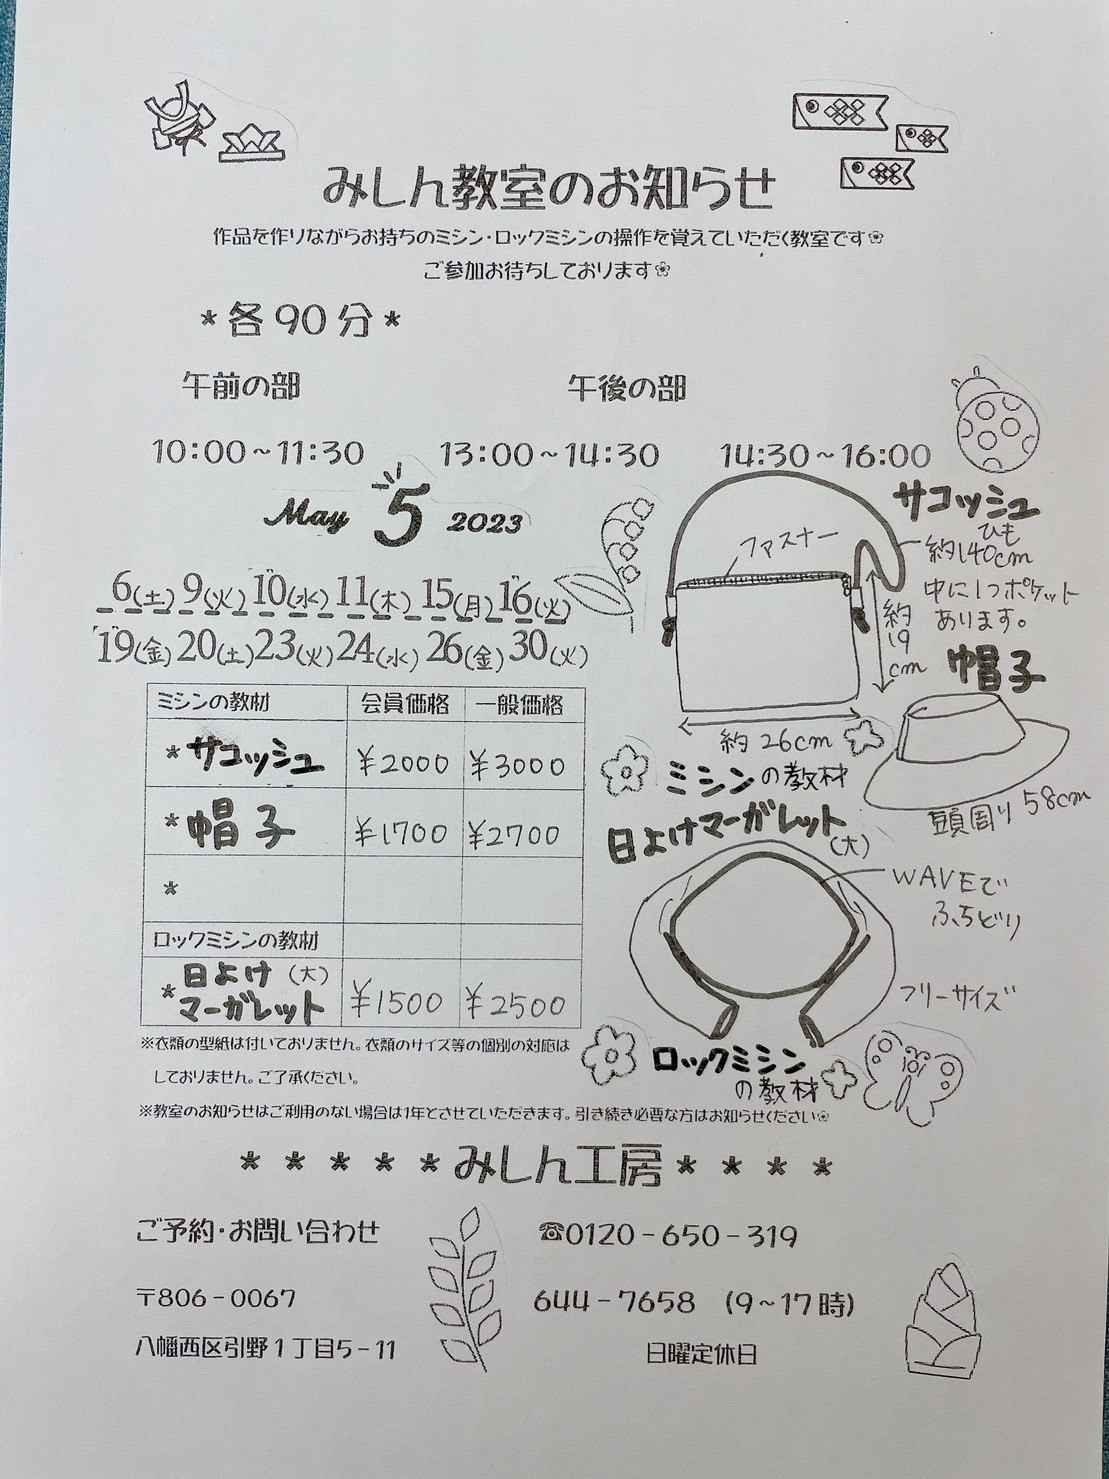 みしん教室のお知らせ
作品を作りながらお持ちのミシン・ロックミシンの操作を覚えていただく教室です❀
ご参加お待ちしております❀
＊各90分＊
午前の部 午後の部
10：00～11：30 13：00～14：30 14：30～16：00
May 5 2023
6(土) 9(火) 10(水) 11(木) 15(月) 16(火)
19(金) 20(土) 23(火) 24(水) 26(金) 30(火)
サコッシュ
ひも
約140cm
中に1つポケット
あります。
ファスナー
約
19
cm
約26cm
帽子
頭周り58cm
ミシンの教材
ミシンの教材 会員価格 一般価格
＊サコッシュ ￥2000 ￥3000
＊帽子 ￥1700 ￥2700
＊
ロックミシンの教材
＊日よけ（大）
マーガレット ￥1500 ￥2500
日よけマーガレット
（大）
WAVEで
ふちどり
フリーサイズ
ロックミシン
の教材
※衣類の型紙は付いておりません。衣類のサイズ等の個別の対応は
しておりません。ご了承ください。
※教室のお知らせはご利用のない場合は1年とさせていただきます。引き続き必要な方はお知らせください❀
＊＊＊＊＊みしん工房＊＊＊＊
ご予約・お問い合わせ ☎0120－650－319
〒806－0067 644－7658 （9～17時）
八幡西区引野1丁目5－11 日曜定休日